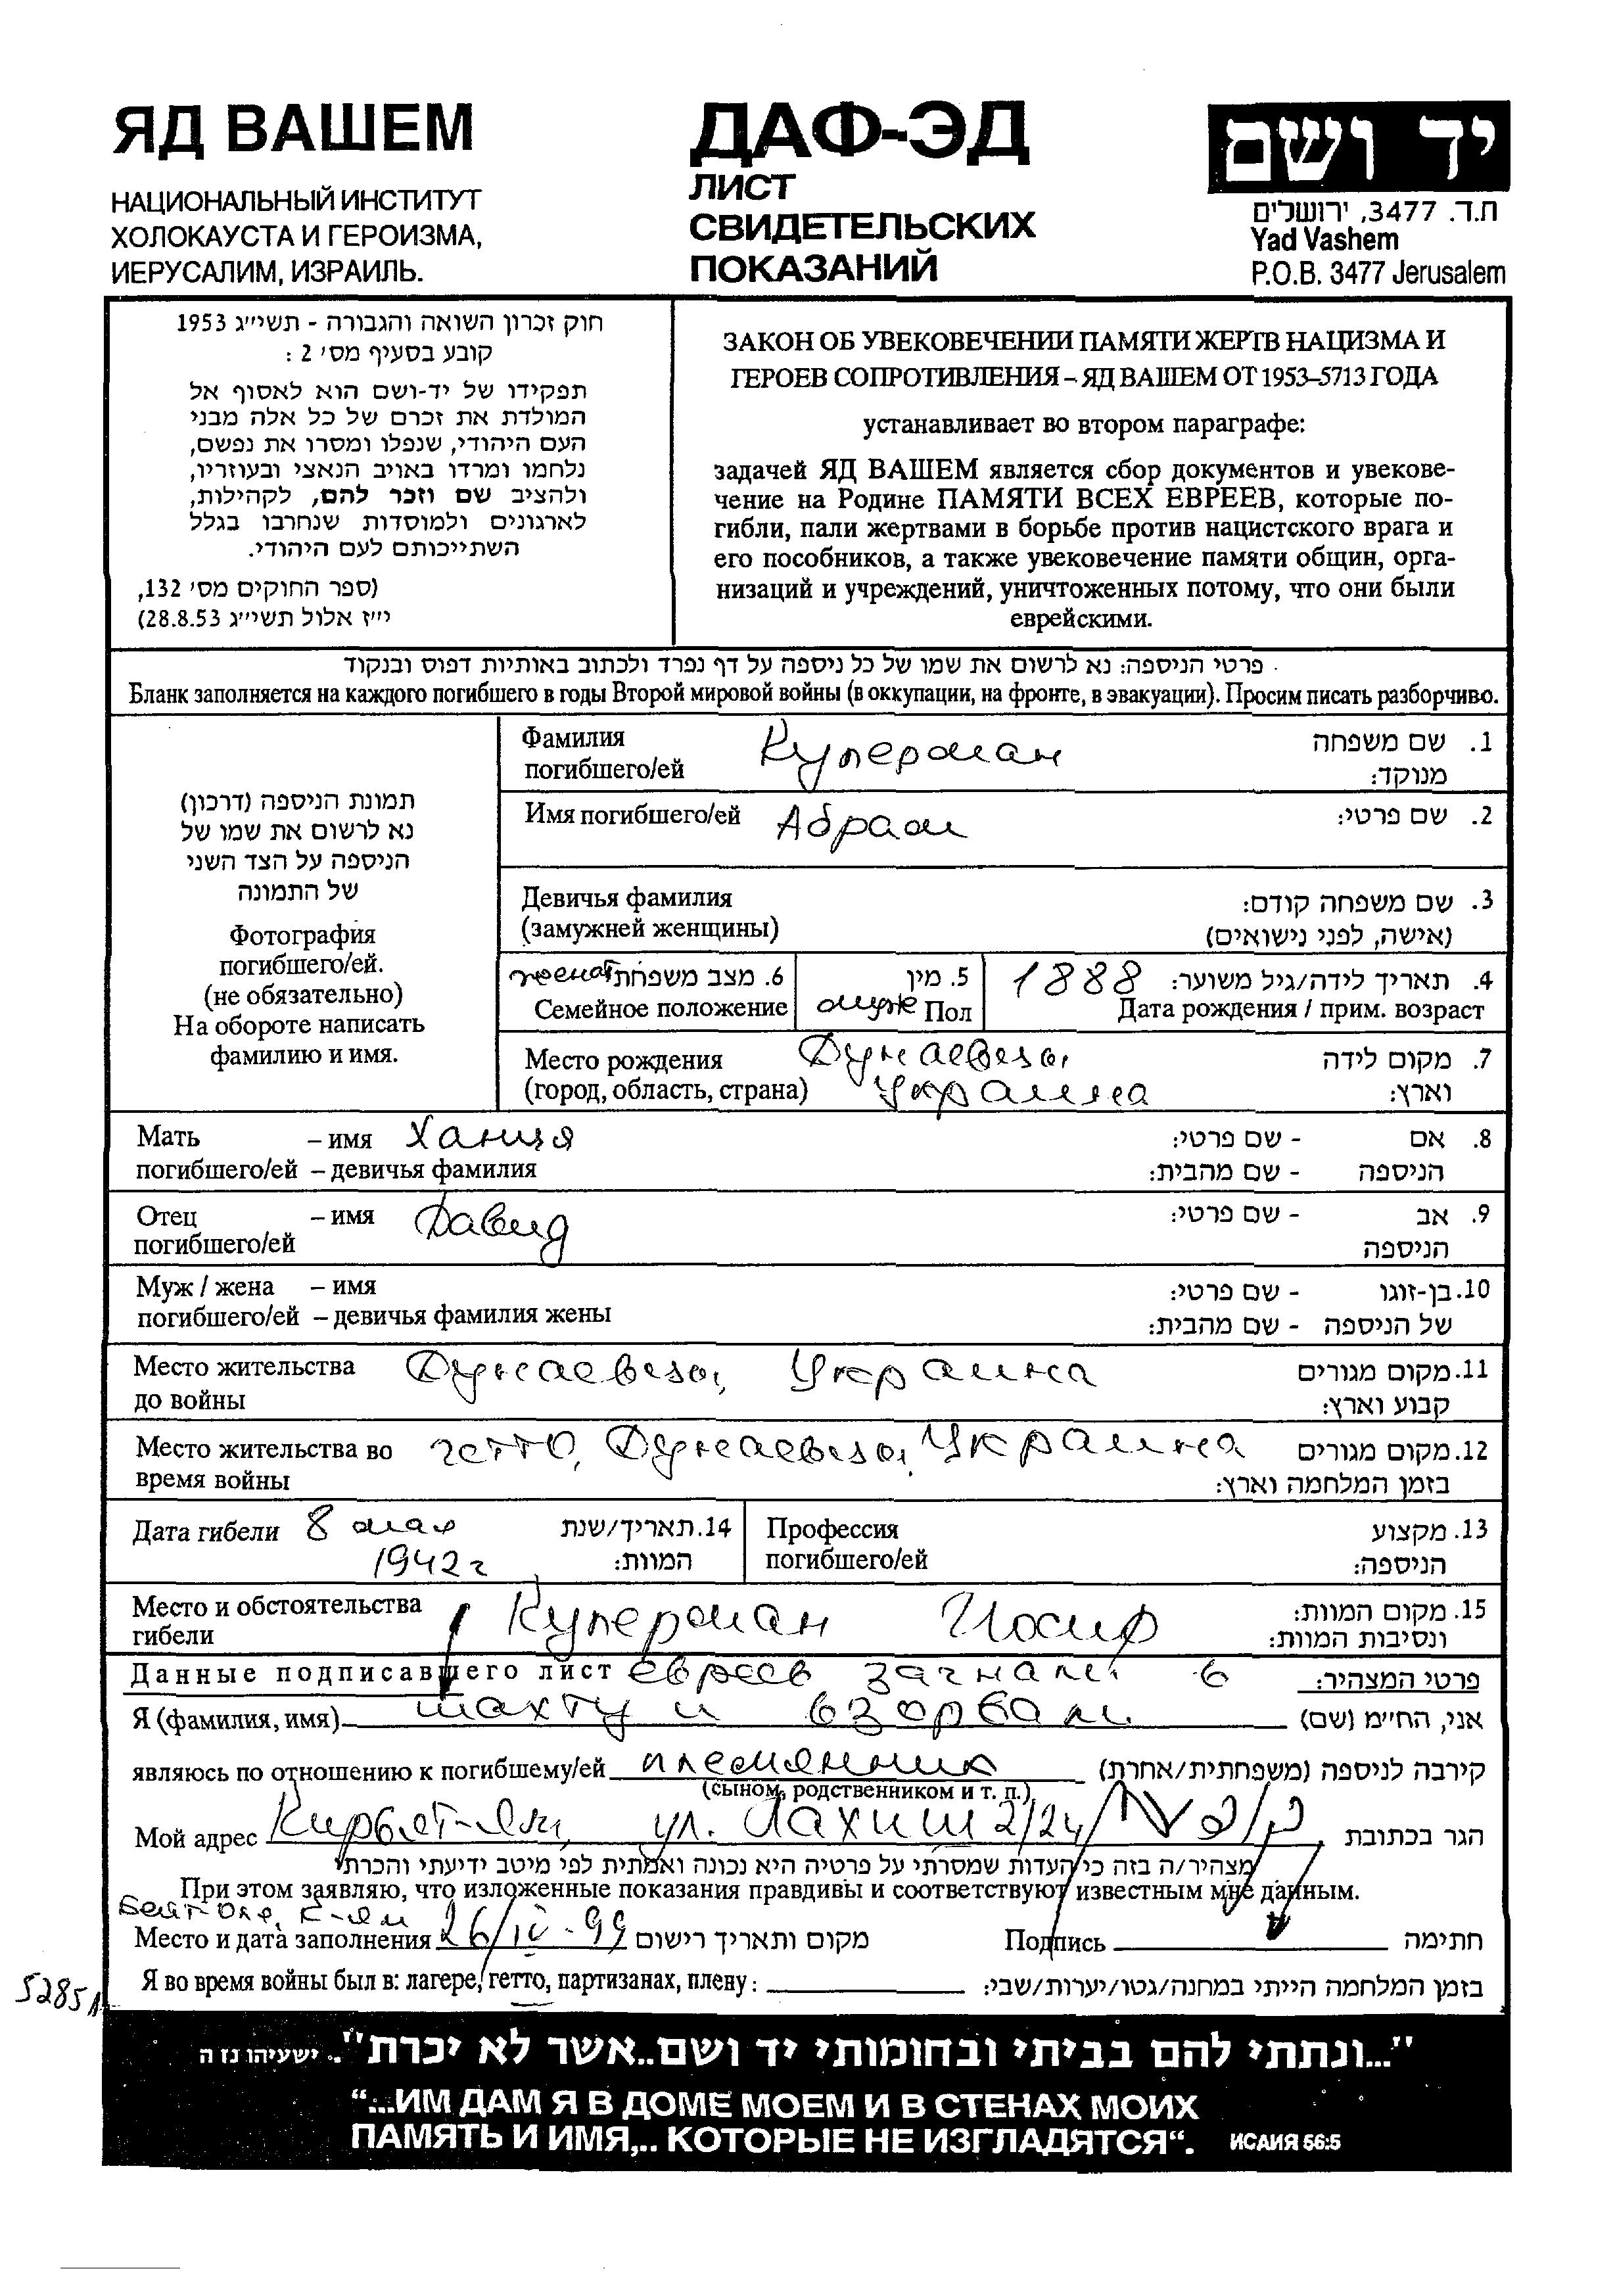 ЯД ВАШЕМ
НАЦИОНАЛЬНЫЙ ИНСТИТУТ
ХОЛОКАУСТА И ГЕРОИЗМА,
ИЕРУСАЛИМ, ИЗРАИЛЬ.
ДАФ-ЭД
ЛИСТ
СВИДЕТЕЛЬСКИХ
ПОКАЗАНИЙ
יד ושם
ת.ד. 3477, ירושלים
Yad Vashem
P.O.B. 3477 Jerusalem
חוק זכרון השואה והגבורה - תשי״ג 1953
קובע בסעיף מס׳ 2 :
תפקידו של יד-ושם הוא לאסוף אל
המולדת את זכרם של כל אלה מבני
העם היהודי, שנפלו ומסרו את נפשם,
נלחמו ומרדו באויב הנאצי ובעוזריו,
ולהציב שם וזכר להם, לקהילות,
לארגונים ולמוסדות שנחרבו בגלל
השתייכותם לעם היהודי.
(ספר החוקים מס׳ 132,
י״ז אלול תשי״ג 28.8.53)
ЗАКОН ОБ УВЕКОВЕЧЕНИИ ПАМЯТИ ЖЕРТВ НАЦИЗМА И
ГЕРОЕВ СОПРОТИВЛЕНИЯ – ЯД ВАШЕМ ОТ 1953–5713 ГОДА
устанавливает во втором параграфе:
задачей ЯД ВАШЕМ является сбор документов и увекове-
чение на Родине ПАМЯТИ ВСЕХ ЕВРЕЕВ, которые по-
гибли, пали жертвами в борьбе против нацистского врага и
его пособников, а также увековечение памяти общин, орга-
низаций и учреждений, уничтоженных потому, что они были
еврейскими.
פרטי הניספה: נא לרשום את שמו של כל ניספה על דף נפרד ולכתוב באותיות דפוס ובנקוד
Бланк заполняется на каждого погибшего в годы Второй мировой войны (в оккупации, на фронте, в эвакуации). Просим писать разборчиво.
תמונת הניספה (דרכון)
נא לרשום את שמו של
הניספה על הצד השני
של התמונה
Фотография
погибшего/ей.
(не обязательно)
На обороте написать
фамилию и имя.
Фамилия Куперман 1. שם משפחה
погибшего/ей מנוקד:
Имя погибшего/ей Абрам 2. שם פרטי:
Девичья фамилия 3. שם משפחה קודם:
(замужней женщины) (אישה, לפני נישואים)
женат 6. מצב משפחתי 5. מין 1888 4. תאריך לידה/גיל משוער:
Семейное положение муж Пол Дата рождения / прим. возраст
Место рождения Дунаевцы, 7. מקום לידה
(город, область, страна) Украина וארץ:
Мать – имя Ханця 8. אם - שם פרטי:
погибшего/ей – девичья фамилия הניספה - שם מהבית:
Отец – имя Давид 9. אב - שם פרטי:
погибшего/ей הניספה
Муж / жена – имя 10. בן-זוגו - שם פרטי:
погибшего/ей – девичья фамилия жены של הניספה - שם מהבית:
Место жительства Дунаевцы, Украина 11. מקום מגורים
до войны קבוע וארץ:
Место жительства во гетто, Дунаевцы, Украина 12. מקום מגורים
время войны בזמן המלחמה וארץ:
Дата гибели 8 мая 14. תאריך/שנת Профессия 13. מקצוע
1942 г המוות: погибшего/ей הניספה:
Место и обстоятельства Куперман Иосиф 15. מקום המוות:
гибели ונסיבות המוות:
Данные подписавшего лист евреев загнали в פרטי המצהיר:
Я (фамилия, имя) шахту и взорвали אני, החי״מ (שם)
являюсь по отношению к погибшему/ей племянник קירבה לניספה (משפחתית/אחרת)
(сыном, родственником и т. п.)
Мой адрес Кирьят-Ям, ул. Лахиш 2/24 הגר בכתובת
מצהיר/ה בזה כי העדות שמסרתי על פרטיה היא נכונה ואמתית לפי מיטב ידיעתי והכרתי
При этом заявляю, что изложенные показания правдивы и соответствуют известным мне данным.
К-Ям
Место и дата заполнения 26/IV-99 מקום ותאריך רישום Подпись חתימה
Я во время войны был в: лагере, гетто, партизанах, плену: בזמן המלחמה הייתי במחנה/גטו/יערות/שבי:
״...ונתתי להם בביתי ובחומותי יד ושם..אשר לא יכרת״. ישעיהו נז ה
“...ИМ ДАМ Я В ДОМЕ МОЕМ И В СТЕНАХ МОИХ
ПАМЯТЬ И ИМЯ,.. КОТОРЫЕ НЕ ИЗГЛАДЯТСЯ“. ИСАИЯ 56:5